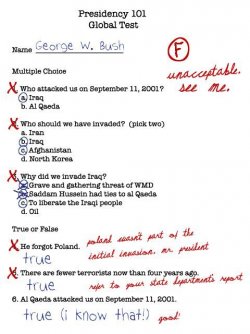 Presidency 101
Global Test
Name George W. Bush
F
Multiple Choice
unacceptable.
see me.
X Who attacked us on September 11, 2001?
a. Iraq
b. Al Qaeda
X Who should we have invaded? (pick two)
a. Iran
b. Iraq
c. Afghanistan
d. North Korea
X Why did we invade Iraq?
a. Grave and gathering threat of WMD
b. Saddam Hussein had ties to al Qaeda
c. To liberate the Iraqi people
d. Oil
True or False
X He forgot Poland.
true
poland wasn't part of the
initial invasion, mr. president
X There are fewer terrorists now than four years ago.
true
refer to your state department's report
6. Al Qaeda attacked us on September 11, 2001.
true (i know that!)
good!